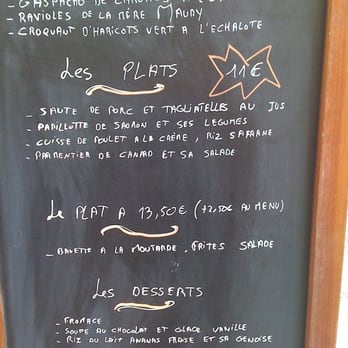 - GASPACHO DE
- RAVIOLES DE LA MÈRE MAURY
- CROQUANT D'HARICOTS VERT A L'ECHALOTE
Les PLATS 11€
- SAUTE DE PORC ET TAGLIATELLES AU JUS
- PAPILLOTTE DE SAUMON ET SES LEGUMES
- CUISSE DE POULET A LA CRÈME, RIZ SAFRANE
- PARMENTIER DE CANARD ET SA SALADE
Le PLAT A 13,50€ (+2,50€ AU MENU)
- BAVETTE A LA MOUTARDE, FRITES SALADE
Les DESSERTS
- FROMAGE
- SOUPE AU CHOCOLAT ET GLACE VANILLE
- RIZ AU LAIT ANANAS FRAISE ET SA GENOISE